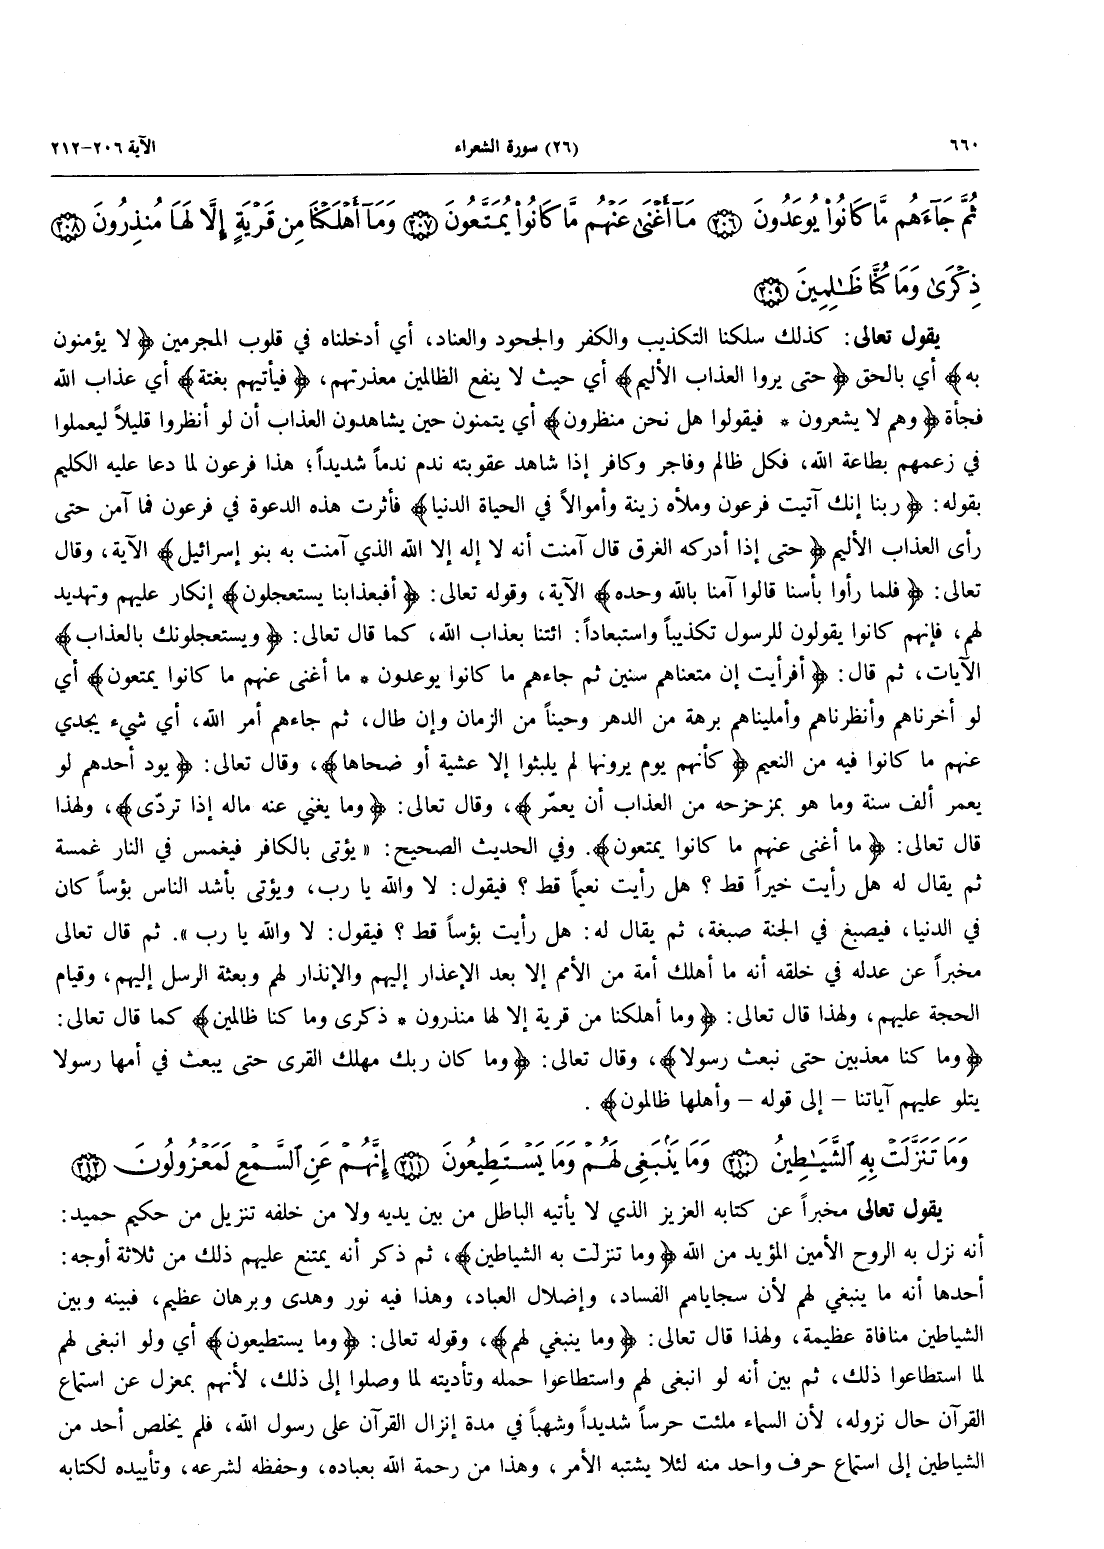 ٦٦٠ (٢٦) سورة الشعراء الآية ٢٠٦-٢١٢
ثُمَّ جَآءَهُم مَّا كَانُوا۟ يُوعَدُونَ ﴿٢٠٦﴾ مَآ أَغْنَىٰ عَنْهُم مَّا كَانُوا۟ يُمَتَّعُونَ ﴿٢٠٧﴾ وَمَآ أَهْلَكْنَا مِن قَرْيَةٍ إِلَّا لَهَا مُنذِرُونَ ﴿٢٠٨﴾
ذِكْرَىٰ وَمَا كُنَّا ظَـٰلِمِينَ ﴿٢٠٩﴾
يقول تعالى: كذلك سلكنا التكذيب والكفر والجحود والعناد، أي أدخلناه في قلوب المجرمين ﴿لا يؤمنون
به﴾ أي بالحق ﴿حتى يروا العذاب الأليم﴾ أي حيث لا ينفع الظالمين معذرتهم، ﴿فيأتيهم بغتة﴾ أي عذاب الله
فجأة ﴿وهم لا يشعرون * فيقولوا هل نحن منظرون﴾ أي يتمنون حين يشاهدون العذاب أن لو أنظروا قليلاً ليعملوا
في زعمهم بطاعة الله، فكل ظالم وفاجر وكافر إذا شاهد عقوبته ندم ندماً شديداً؛ هذا فرعون لما دعا عليه الكليم
بقوله: ﴿ربنا إنك آتيت فرعون وملأه زينة وأموالاً في الحياة الدنيا﴾ فأثرت هذه الدعوة في فرعون فما آمن حتى
رأى العذاب الأليم ﴿حتى إذا أدركه الغرق قال آمنت أنه لا إله إلا الله الذي آمنت به بنو إسرائيل﴾ الآية، وقال
تعالى: ﴿فلما رأوا بأسنا قالوا آمنا بالله وحده﴾ الآية، وقوله تعالى: ﴿أفبعذابنا يستعجلون﴾ إنكار عليهم وتهديد
لهم، فإنهم كانوا يقولون للرسول تكذيباً واستبعاداً: ائتنا بعذاب الله، كما قال تعالى: ﴿ويستعجلونك بالعذاب﴾
الآيات، ثم قال: ﴿أفرأيت إن متعناهم سنين ثم جاءهم ما كانوا يوعدون * ما أغنى عنهم ما كانوا يمتعون﴾ أي
لو أخرناهم وأنظرناهم وأمليناهم برهة من الدهر وحيناً من الزمان وإن طال، ثم جاءهم أمر الله، أي شيء يجدي
عنهم ما كانوا فيه من النعيم ﴿كأنهم يوم يرونها لم يلبثوا إلا عشية أو ضحاها﴾، وقال تعالى: ﴿يود أحدهم لو
يعمر ألف سنة وما هو بمزحزحه من العذاب أن يعمّر﴾، وقال تعالى: ﴿وما يغني عنه ماله إذا تردّى﴾، ولهذا
قال تعالى: ﴿ما أغنى عنهم ما كانوا يمتعون﴾. وفي الحديث الصحيح: « يؤتى بالكافر فيغمس في النار غمسة
ثم يقال له هل رأيت خيراً قط؟ هل رأيت نعيماً قط؟ فيقول: لا والله يا رب، ويؤتى بأشد الناس بؤساً كان
في الدنيا، فيصبغ في الجنة صبغة، ثم يقال له: هل رأيت بؤساً قط؟ فيقول: لا والله يا رب ». ثم قال تعالى
مخبراً عن عدله في خلقه أنه ما أهلك أمة من الأمم إلا بعد الإعذار إليهم والإنذار لهم وبعثة الرسل إليهم، وقيام
الحجة عليهم، ولهذا قال تعالى: ﴿وما أهلكنا من قرية إلا لها منذرون * ذكرى وما كنا ظالمين﴾ كما قال تعالى:
﴿وما كنا معذبين حتى نبعث رسولا﴾، وقال تعالى: ﴿وما كان ربك مهلك القرى حتى يبعث في أمها رسولا
يتلو عليهم آياتنا – إلى قوله – وأهلها ظالمون﴾ .
وَمَا تَنَزَّلَتْ بِهِ ٱلشَّيَـٰطِينُ ﴿٢١٠﴾ وَمَا يَنۢبَغِى لَهُمْ وَمَا يَسْتَطِيعُونَ ﴿٢١١﴾ إِنَّهُمْ عَنِ ٱلسَّمْعِ لَمَعْزُولُونَ ﴿٢١٢﴾
يقول تعالى مخبراً عن كتابه العزيز الذي لا يأتيه الباطل من بين يديه ولا من خلفه تنزيل من حكيم حميد:
أنه نزل به الروح الأمين المؤيد من الله ﴿وما تنزلت به الشياطين﴾، ثم ذكر أنه يمتنع عليهم ذلك من ثلاثة أوجه:
أحدها أنه ما ينبغي لهم لأن سجاياهم الفساد، وإضلال العباد، وهذا فيه نور وهدى وبرهان عظيم، فبينه وبين
الشياطين منافاة عظيمة، ولهذا قال تعالى: ﴿وما ينبغي لهم﴾، وقوله تعالى: ﴿وما يستطيعون﴾ أي ولو انبغى لهم
لما استطاعوا ذلك، ثم بين أنه لو انبغى لهم واستطاعوا حمله وتأديته لما وصلوا إلى ذلك، لأنهم بمعزل عن استماع
القرآن حال نزوله، لأن السماء ملئت حرساً شديداً وشهباً في مدة إنزال القرآن على رسول الله، فلم يخلص أحد من
الشياطين إلى استماع حرف واحد منه لئلا يشتبه الأمر، وهذا من رحمة الله بعباده، وحفظه لشرعه، وتأييده لكتابه